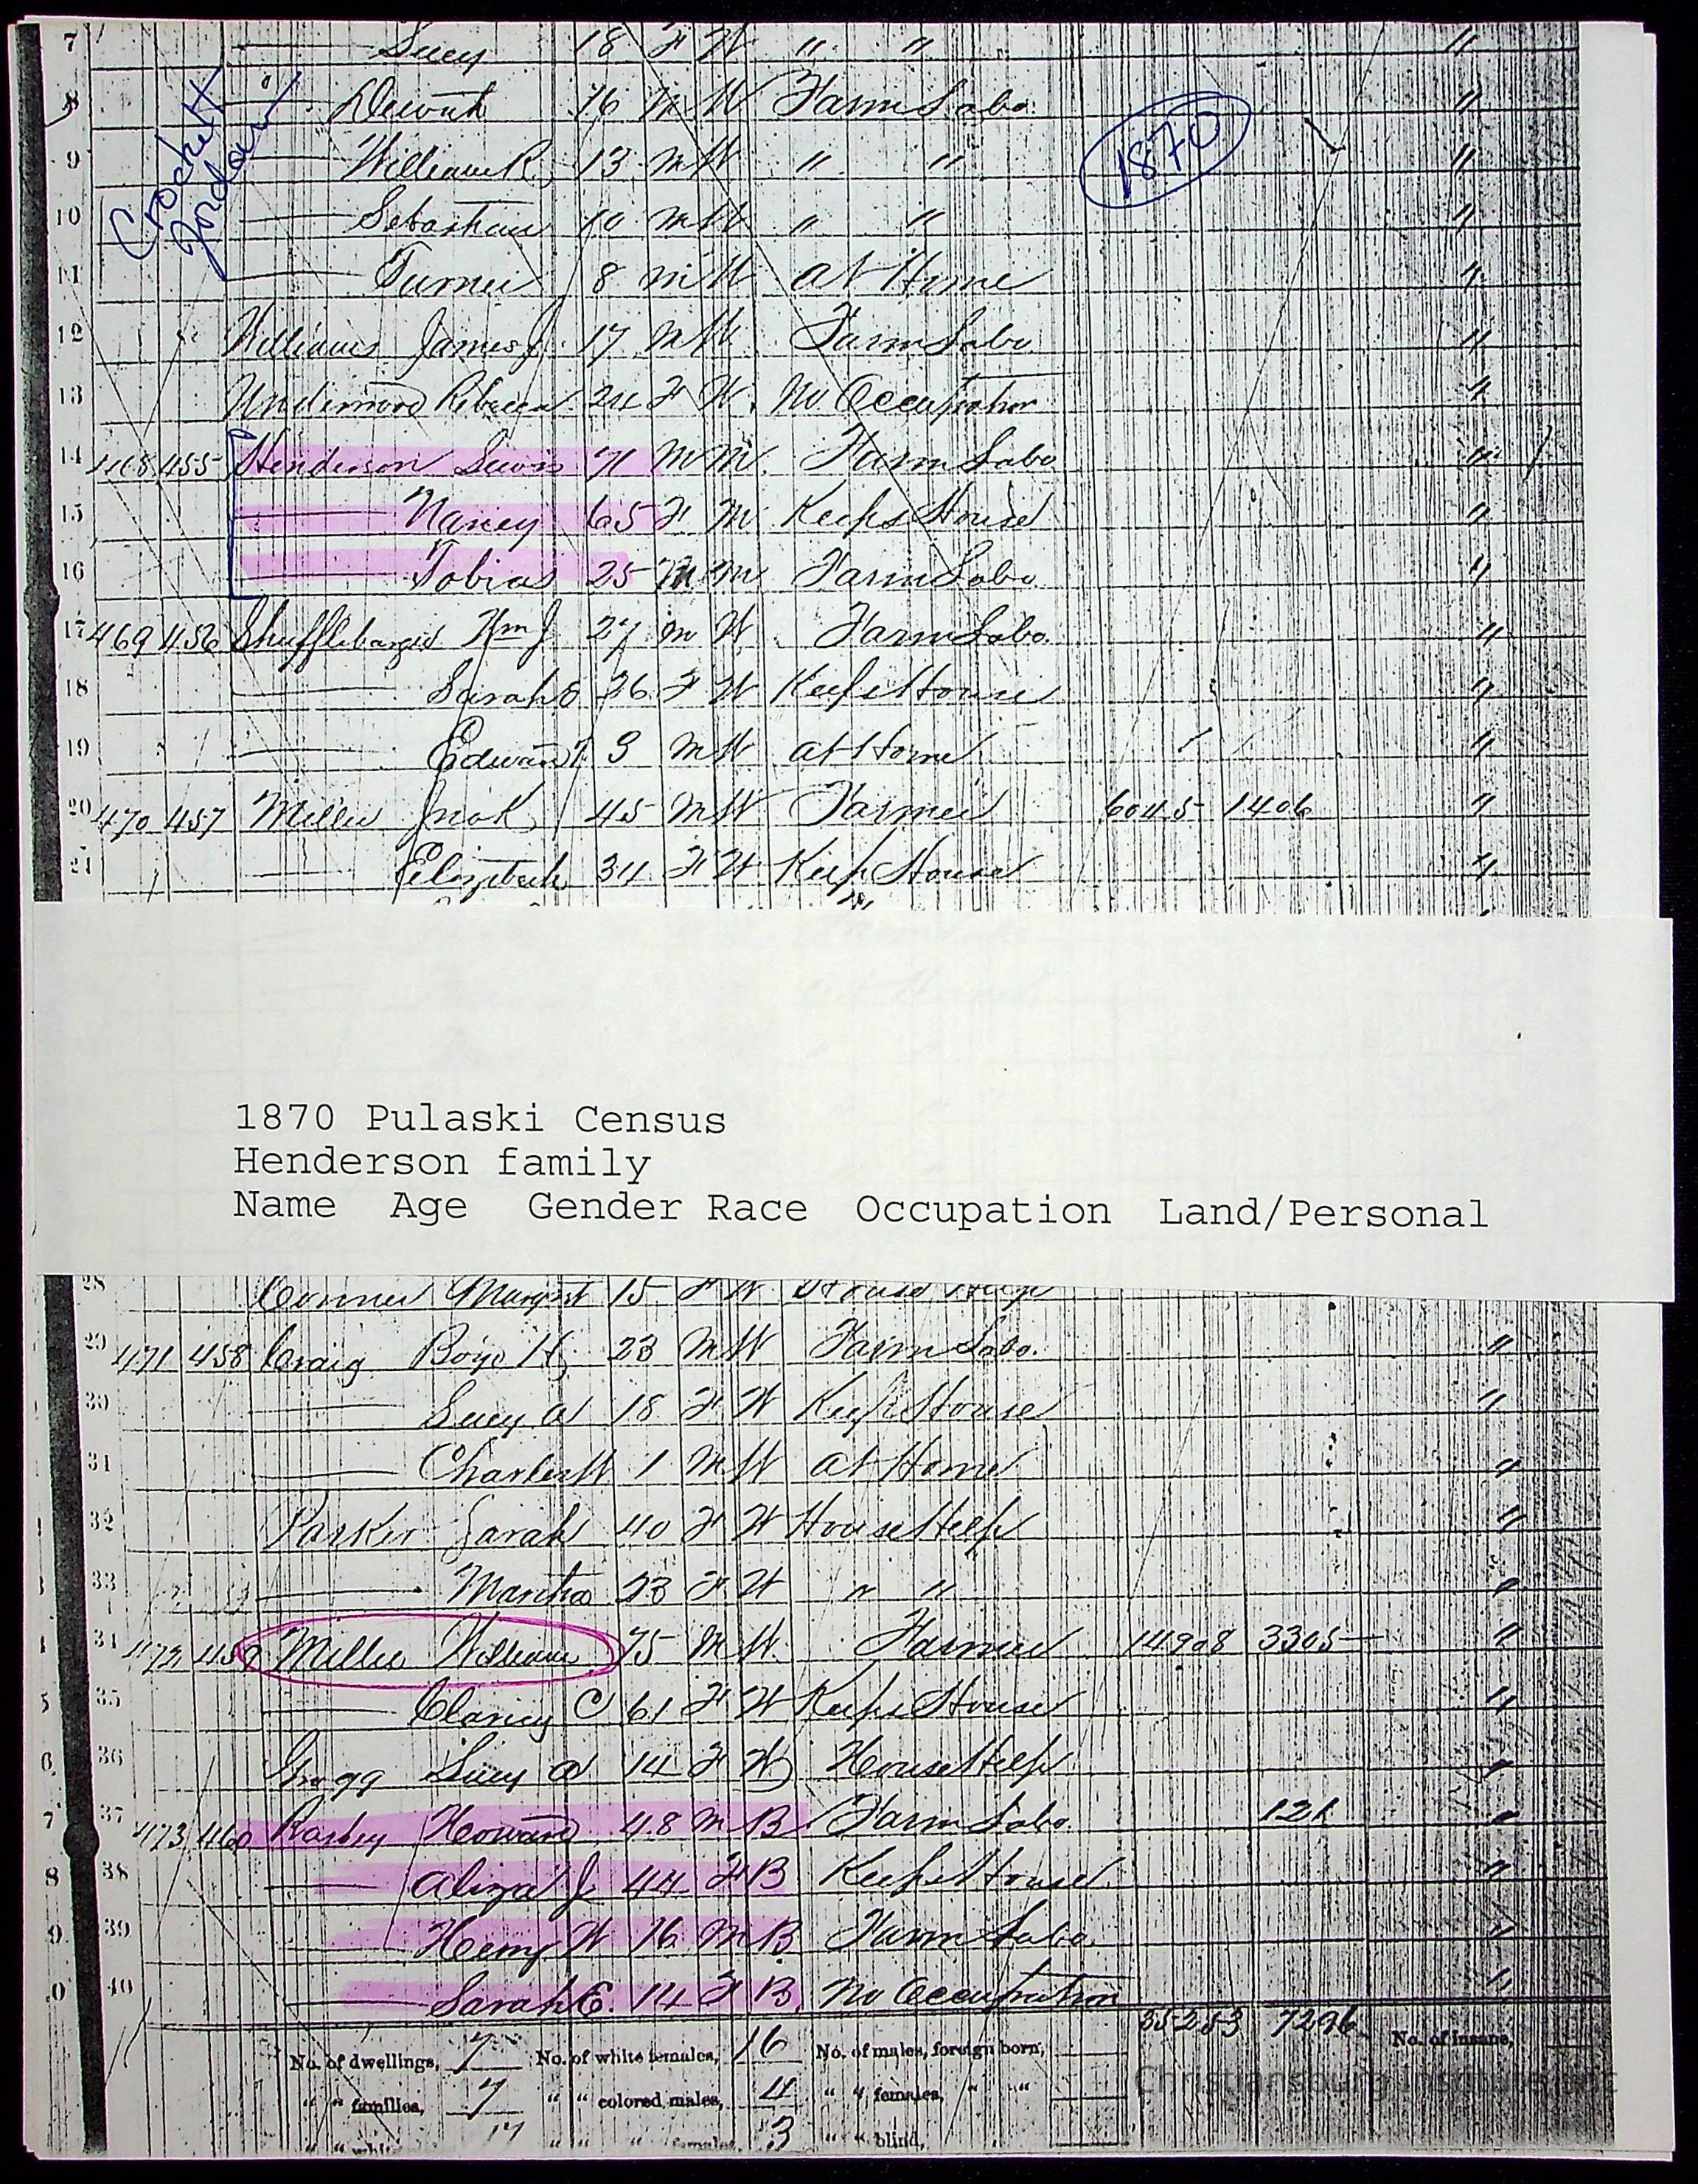 7 Lucy 18 F W " " "
8 16 M W Farm Labo. "
Crockett
Jordan
1870
9 William R. 13 M W " " "
10 Sebastian 10 M W " " "
11 Turner 8 M W At Home "
12 Williams James J. 17 M W Farm Labo. "
13 Underwood Rebecca 24 F W. No Occupation "
14 468 455 Henderson Lewis 71 M M. Farm Labo "
15 Nancy 65 F M Keeps House "
16 Tobias 25 M M Farm Labo. "
17 469 456 Wm J. 27 M W. Farm Labo. "
18 Sarah E 26 F W Keeps House "
19 Edward T. 3 M W At Home "
20 470 457 Miller Jno K. 45 M W Farmer 6045 1406 "
21 Elizabeth 34 F W Keeps House "
1870 Pulaski Census
Henderson family
Name Age Gender Race Occupation Land/Personal
28 Conner Margret 15 F W House Help
29 471 458 Craig 23 M W Farm Labo. "
30 Lucy A 18 F W Keeps House "
31 Charles W 1 M W At Home "
32 Parker Sarah 40 F W House Help "
33 Martha 23 F W " " "
34 472 459 Miller William 75 M W. Farmer 14908 3305 "
35 C 61 F W Keeps House "
36 Gragg Lucy A 14 F W House Help "
37 473 460 Howard 48 M B Farm Labo. 121 "
38 Aliza J 44 F B Keeps House "
39 Henry W 16 M B Farm Labo. "
40 Sarah E. 14 F B. No Occupation "
35253 7296
No. of dwellings, 7 No. of white females, 16 No. of males, foreign born, No. of insane,
" " families, 7 " " colored males, 4 " " females, " "
" " white " " " females, 3 " " blind,
Christiansburg Institute, Inc